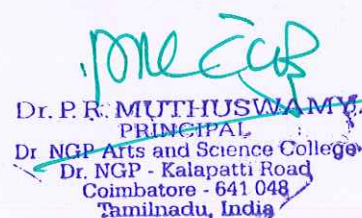 Dr. P. R. MUTHUSWAMY
PRINCIPAL
Dr NGP Arts and Science College
Dr. NGP - Kalapatti Road
Coimbatore - 641 048
Tamilnadu, India